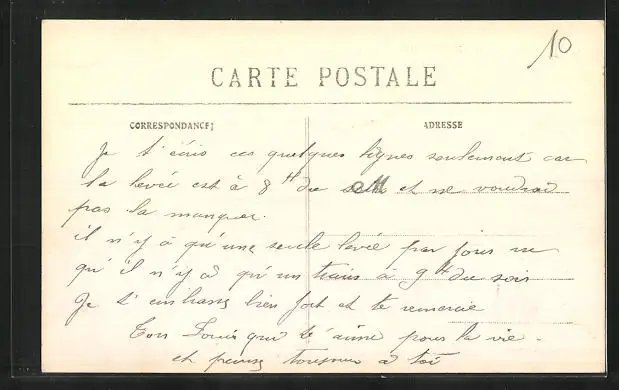 10
CARTE POSTALE
CORRESPONDANCE
ADRESSE
Je t'écris ces quelques lignes seulement car
la levée est à 8 H du et ne voudrais
pas la manquer.
il n'y a qu'une seule levée par jour
qu'il n'y a qu'un train à 9 H du soir
Je t'embrasse bien fort et te remercie
Ton Louis qui t'aime pour la vie.
et pense toujours à toi